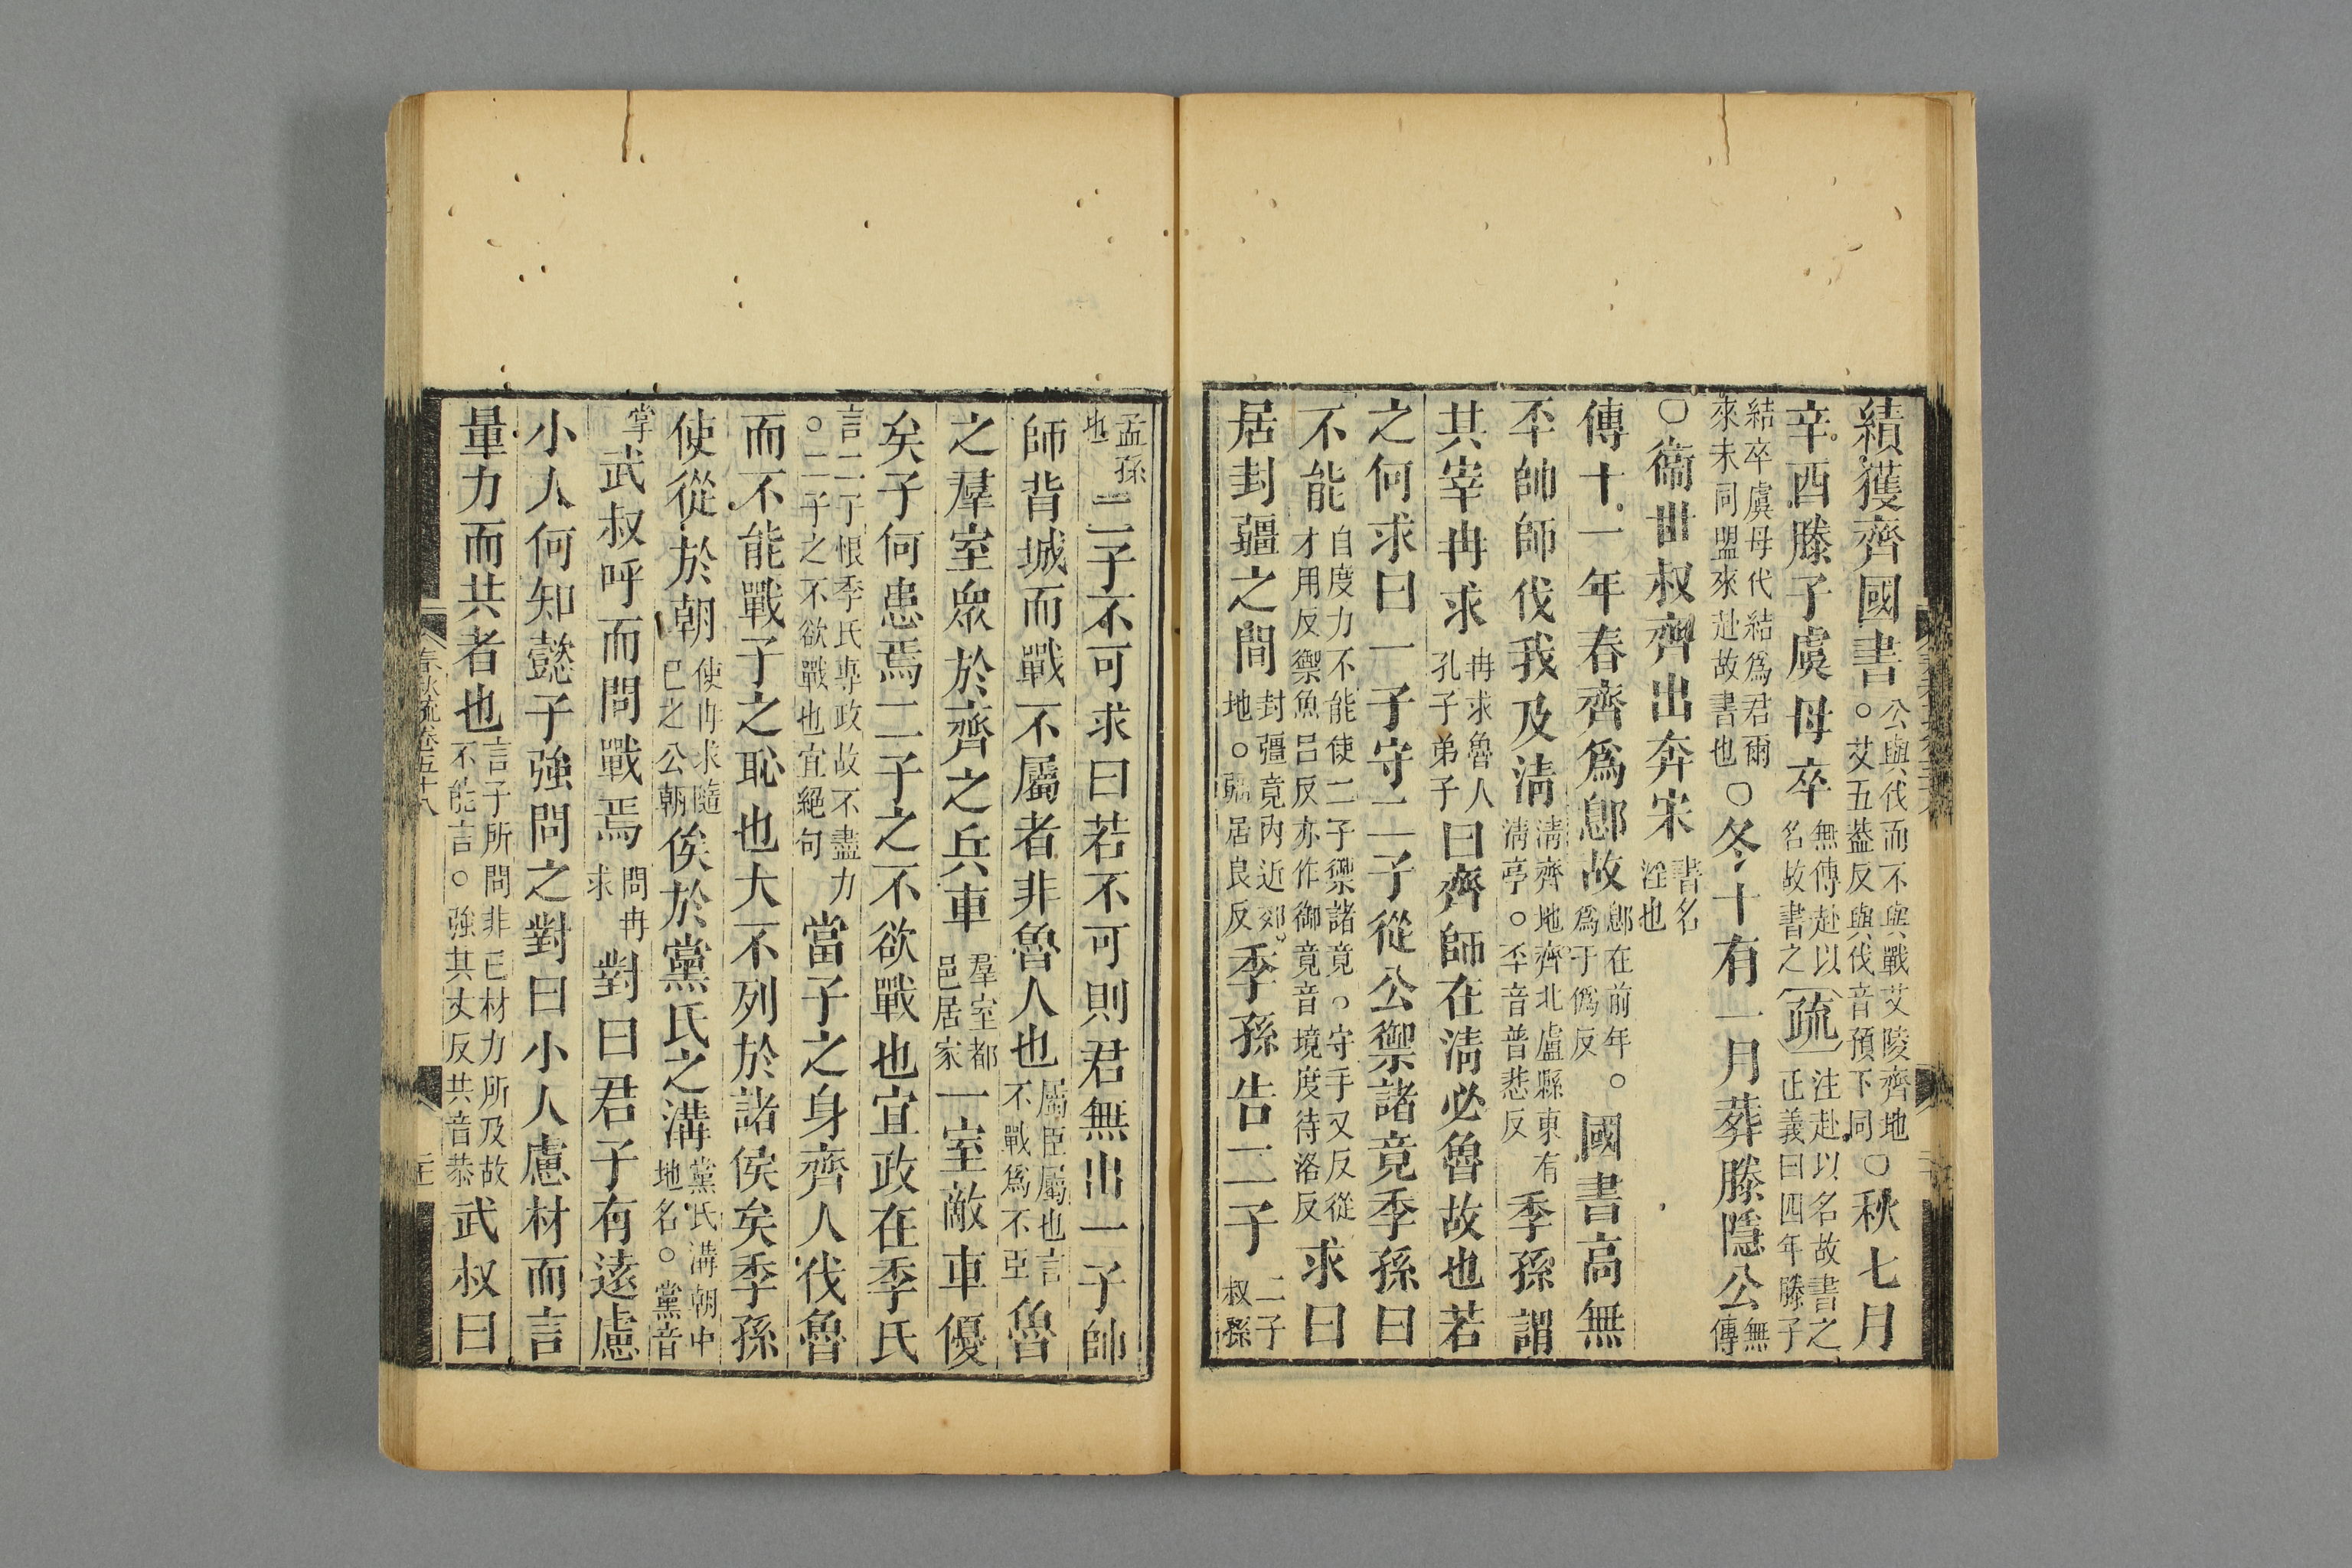 績獲齊國書公與伐而不與戰艾陵齊地○艾五蓋反與伐音預下同○秋七月
辛酉滕子虞母卒無傳赴以名故書之疏注赴以名故書之正義曰四年滕子
結卒虞母代結爲君爾來未同盟來赴故書也○冬十有一月葬滕隱公無傳
○衞世叔齊出奔宋書名淫也
傳十一年春齊爲鄎故鄎在前年○爲于僞反國書高無
㔻帥師伐我及淸淸齊地齊北盧縣東有淸亭○㔻音普悲反季孫謂
其宰冉求冉求魯人孔子弟子曰齊師在淸必魯故也若
之何求曰一子守二子從公禦諸竟季孫曰
不能自度力不能使二子禦諸竟○守手又反從才用反禦魚呂反亦作御竟音境度待洛反求曰
居封疆之間封疆竟內近郊地○疆居良反季孫告二子二子叔孫
孟孫也二子不可求曰若不可則君無出一子帥
師背城而戰不屬者非魯人也屬臣屬也言不戰爲不臣魯
之羣室衆於齊之兵車羣室都邑居家一室敵車優
矣子何患焉二子之不欲戰也宜政在季氏
言二子恨季氏專政故不盡力○二子之不欲戰也宜絕句當子之身齊人伐魯
而不能戰子之恥也大不列於諸侯矣季孫
使從於朝使冉求隨已之公朝俟於黨氏之溝黨氏溝朝中地名○黨音
掌武叔呼而問戰焉問冉求對曰君子有遠慮
小人何知懿子強問之對曰小人慮材而言
量力而共者也言子所問非已材力所及故不能言○強其丈反共音恭武叔曰
春秋疏卷五十八